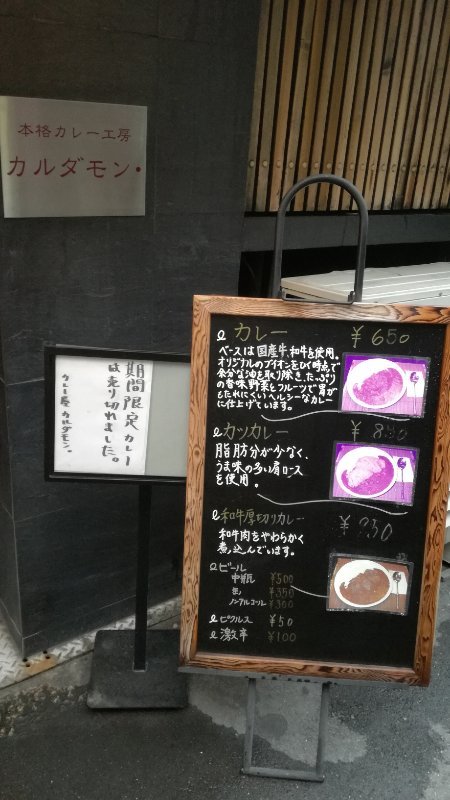 本格カレー工房
カルダモン・
期間限定カレー
は売り切れました。
カレー屋 カルダモン。
カレー ¥650
ベースは国産牛、和牛を使用。
オリジナルのブイヨンをひく時点で
余分な油を取り除き、たっぷり
の香味野菜とフルーツで胃が
もたれにくいヘルシーなカレー
に仕上げています。
カツカレー
脂肪分が少なく、
うま味の多い肩ロース
を使用。
和牛厚切りカレー
和牛肉をやわらかく
煮込んでいます。
ビール
中瓶 ¥500
生 ¥350
ノンアルコール ¥300
ピクルス ¥50
激辛 ¥100